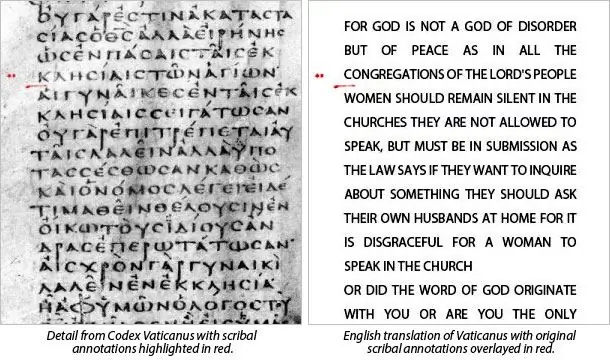 ΟΥΓΑΡΕϹΤΙΝΑΚΑΤΑϹΤΑ
ϹΙΑϹΟΘϹΑΛΛΑΕΙΡΗΝΗϹ
ΩϹΕΝΠΑϹΑΙϹΤΑΙϹΕΚ
ΚΛΗϹΙΑΙϹΤΩΝΑΓΙΩΝ
ΑΙΓΥΝΑΙΚΕϹΕΝΤΑΙϹΕΚ
ΚΛΗϹΙΑΙϹϹΕΙΓΑΤΩϹΑΝ
ΟΥΓΑΡΕΠΙΤΡΕΠΕΤΑΙΑΥ
ΤΑΙϹΛΑΛΕΙΝΑΛΛΑΥΠΟ
ΤΑϹϹΕϹΘΩϹΑΝΚΑΘΩϹ
ΚΑΙΟΝΟΜΟϹΛΕΓΕΙΕΙΔΕ
ΤΙΜΑΘΕΙΝΘΕΛΟΥϹΙΝΕΝ
ΟΙΚΩΤΟΥϹΙΔΙΟΥϹΑΝ
ΔΡΑϹΕΠΕΡΩΤΑΤΩϹΑΝ
ΑΙϹΧΡΟΝΓΑΡΓΥΝΑΙΚΙ
ΛΑΛΕΙΝΕΝΕΚΚΛΗϹΙΑ
ΗΑΦΥΜΩΝΟΛΟΓΟϹΤΥ
Detail from Codex Vaticanus with scribal
annotations highlighted in red.
FOR GOD IS NOT A GOD OF DISORDER
BUT OF PEACE AS IN ALL THE
CONGREGATIONS OF THE LORD'S PEOPLE
WOMEN SHOULD REMAIN SILENT IN THE
CHURCHES THEY ARE NOT ALLOWED TO
SPEAK, BUT MUST BE IN SUBMISSION AS
THE LAW SAYS IF THEY WANT TO INQUIRE
ABOUT SOMETHING THEY SHOULD ASK
THEIR OWN HUSBANDS AT HOME FOR IT
IS DISGRACEFUL FOR A WOMAN TO
SPEAK IN THE CHURCH
OR DID THE WORD OF GOD ORIGINATE
WITH YOU OR ARE YOU THE ONLY
English translation of Vaticanus with original
scribal annotations overlayed in red.